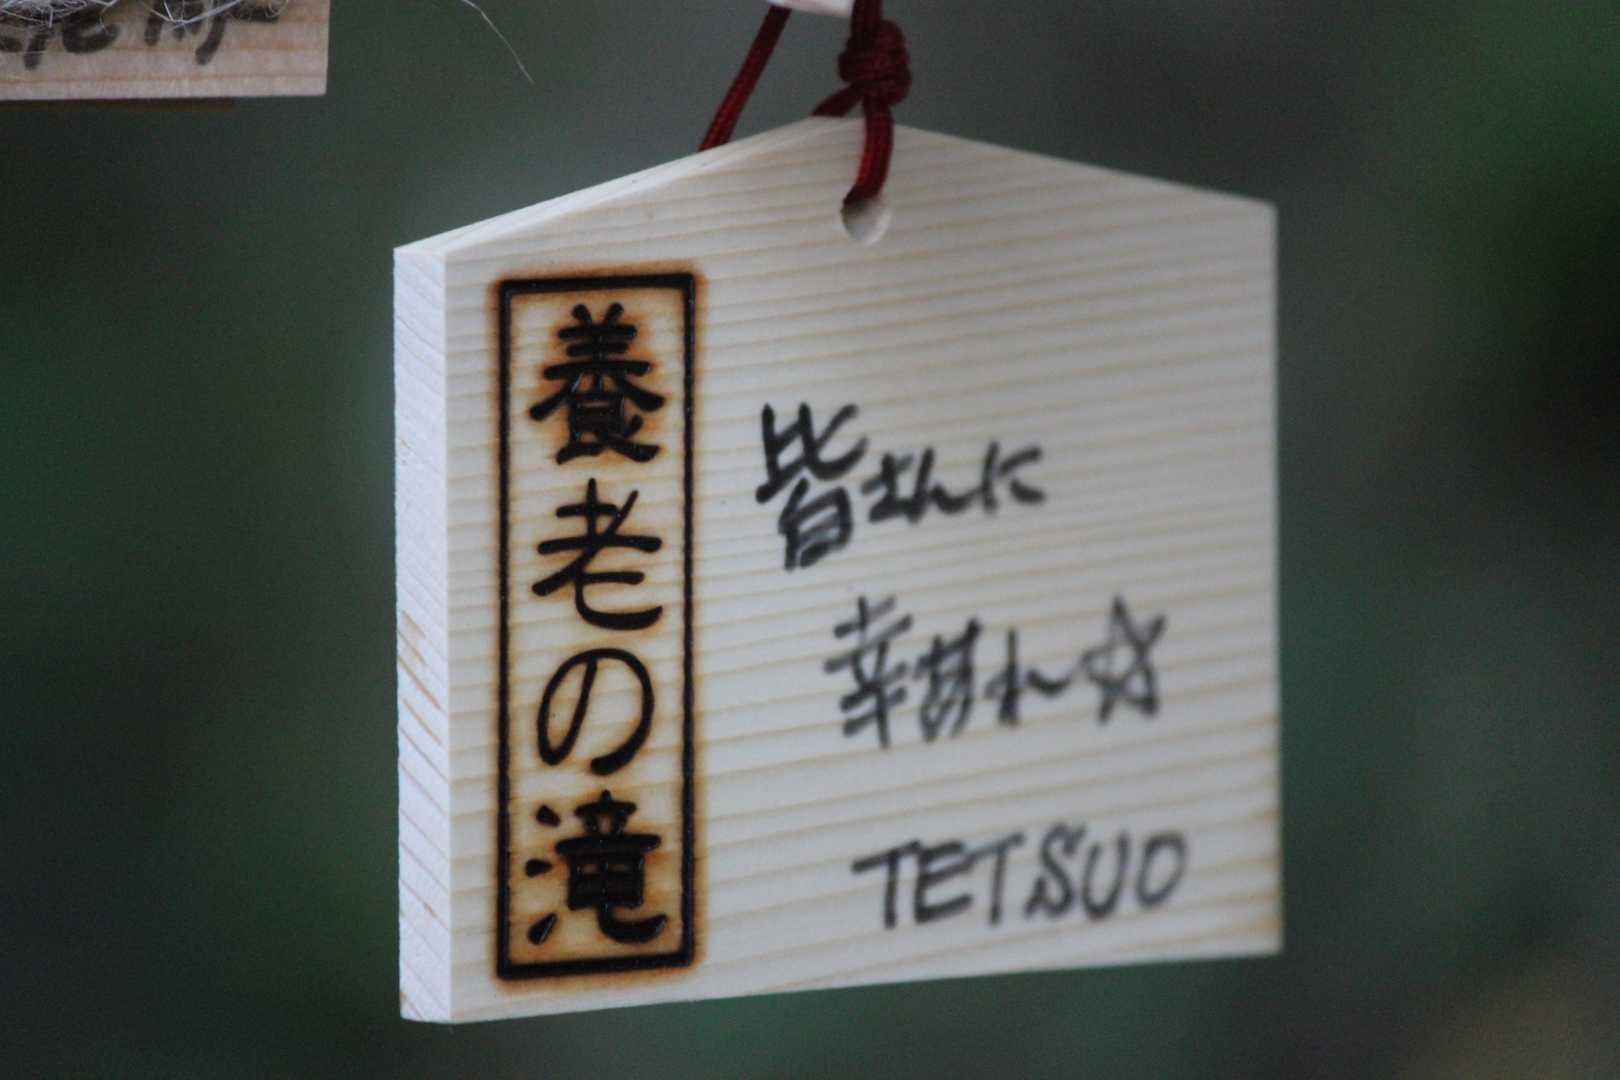 養老の滝
皆さんに
幸あれ☆
TETSUO